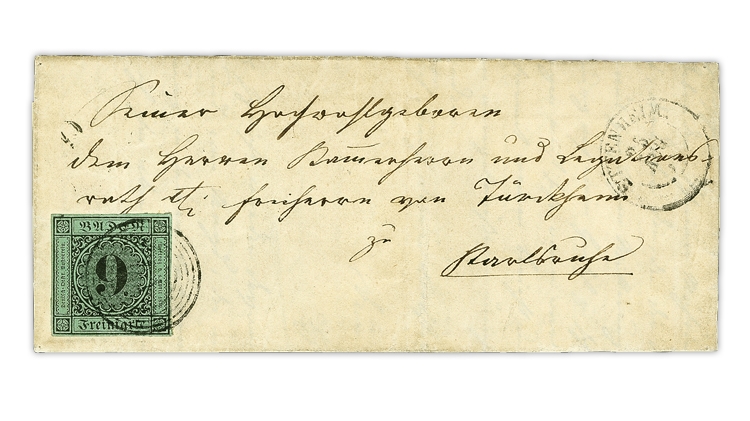 Seiner Hochwohlgeboren
dem Herren Kammerherrn und Legations-
rath Freiherrn von Türckheim
zu
Karlsruhe
ETTENHEIM.
BADEN
9
Freimarke